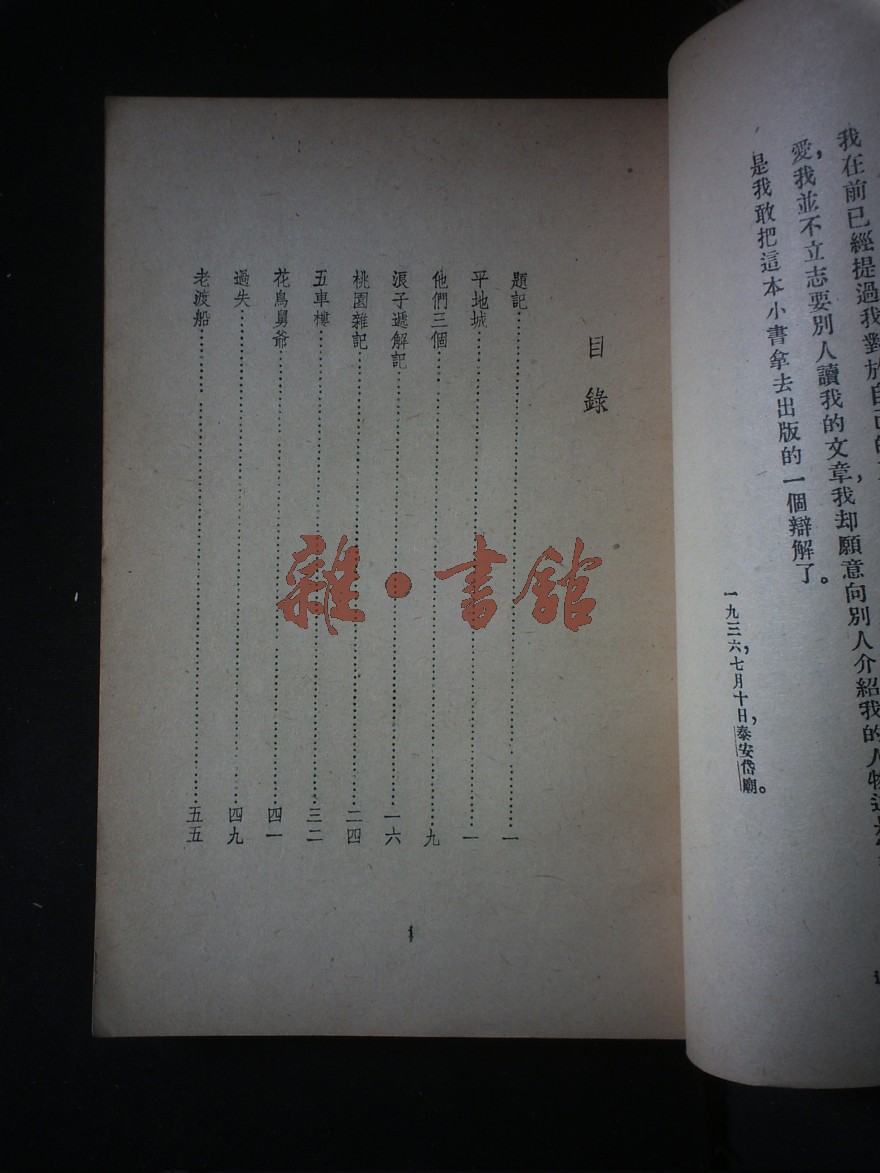 我在前已經提過我對於自己的
愛,我並不立志要別人讀我的文章,我却願意向別人介紹我的人物這
是我敢把這本小書拿去出版的一個辯解了。
一九三六,七月十日,泰安岱廟。
目錄
題記……一
平地城……一
他們三個……九
浪子遞解記……一六
桃園雜記……二四
五車樓……三二
花鳥舅爺……四一
過失……四九
老渡船……五五
1
雜·書館